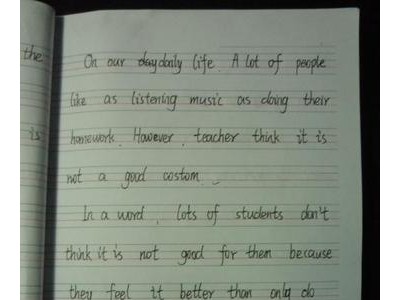 the
is
On our daily life. A lot of people
like as listening music as doing their
homework. However, teacher think it is
not a good costom.
In a word, lots of students don't
think it is not good for them because
they feel it better than only do